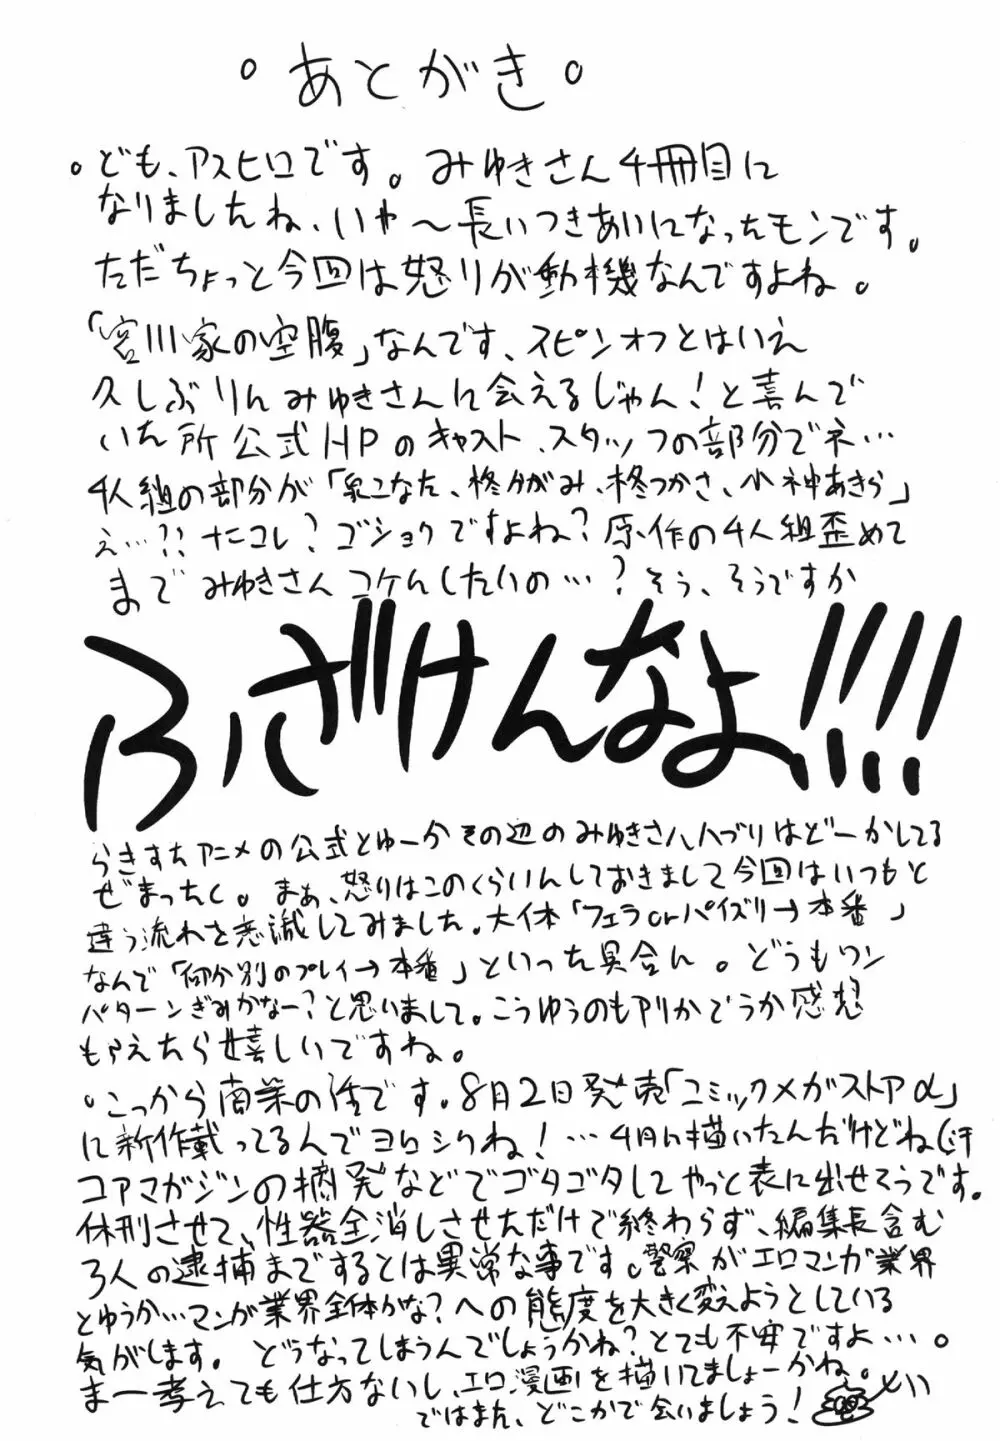 。あとがき。
。ども、アスヒロです。みゆきさん4冊目に
なりましたね、いや～長いつきあいになったモンです。
ただちょっと今回は怒りが動機なんですよね。
「宮川家の空腹」なんです、スピンオフとはいえ
久しぶりにみゆきさんに会えるじゃん!と喜んで
いた所公式HPのキャスト、スタッフの部分でネ…
4人組の部分が「泉こなた、柊かがみ、柊つかさ、小神あきら」
え…?? ナニコレ?ゴショクですよね?原作の4人組歪めて
までみゆきさんコケにしたいの…?そう、そうですか
ふざけんなよ!!!!
らきすたアニメの公式とゆーかその辺のみゆきさんハブりはどーかしてる
ぜまったく。まぁ、怒りはこのくらいにしておきまして今回はいつもと
違う流れを意識してみました。大体「フェラorパイズリ→本番」
なんで「何か別のプレイ→本番」といった具合に。どうもワン
パターンぎみかなー?と思いまして。こうゆうのもアリかどうか感想
もらえたら嬉しいですね。
。こっから商業の話です。8月2日発売「コミックメガストアα」
に新作載ってるんでヨロシクね!…4月に描いたんだけどね(汗
コアマガジンの摘発などでゴタゴタしてやっと表に出せそうです。
休刊させて、性器全消しさせただけで終わらず、編集長含む
3人の逮捕までするとは異常な事です。警察がエロマンガ業界
とゆうか…マンガ業界全体がな?への態度を大きく変えようとしている
気がします。どうなってしまうんでしょうかね?とても不安ですよ…。
ま一考えても仕方ないし、エロ漫画を描いてましょーかね。
ではまた、どこかで会いましょう!